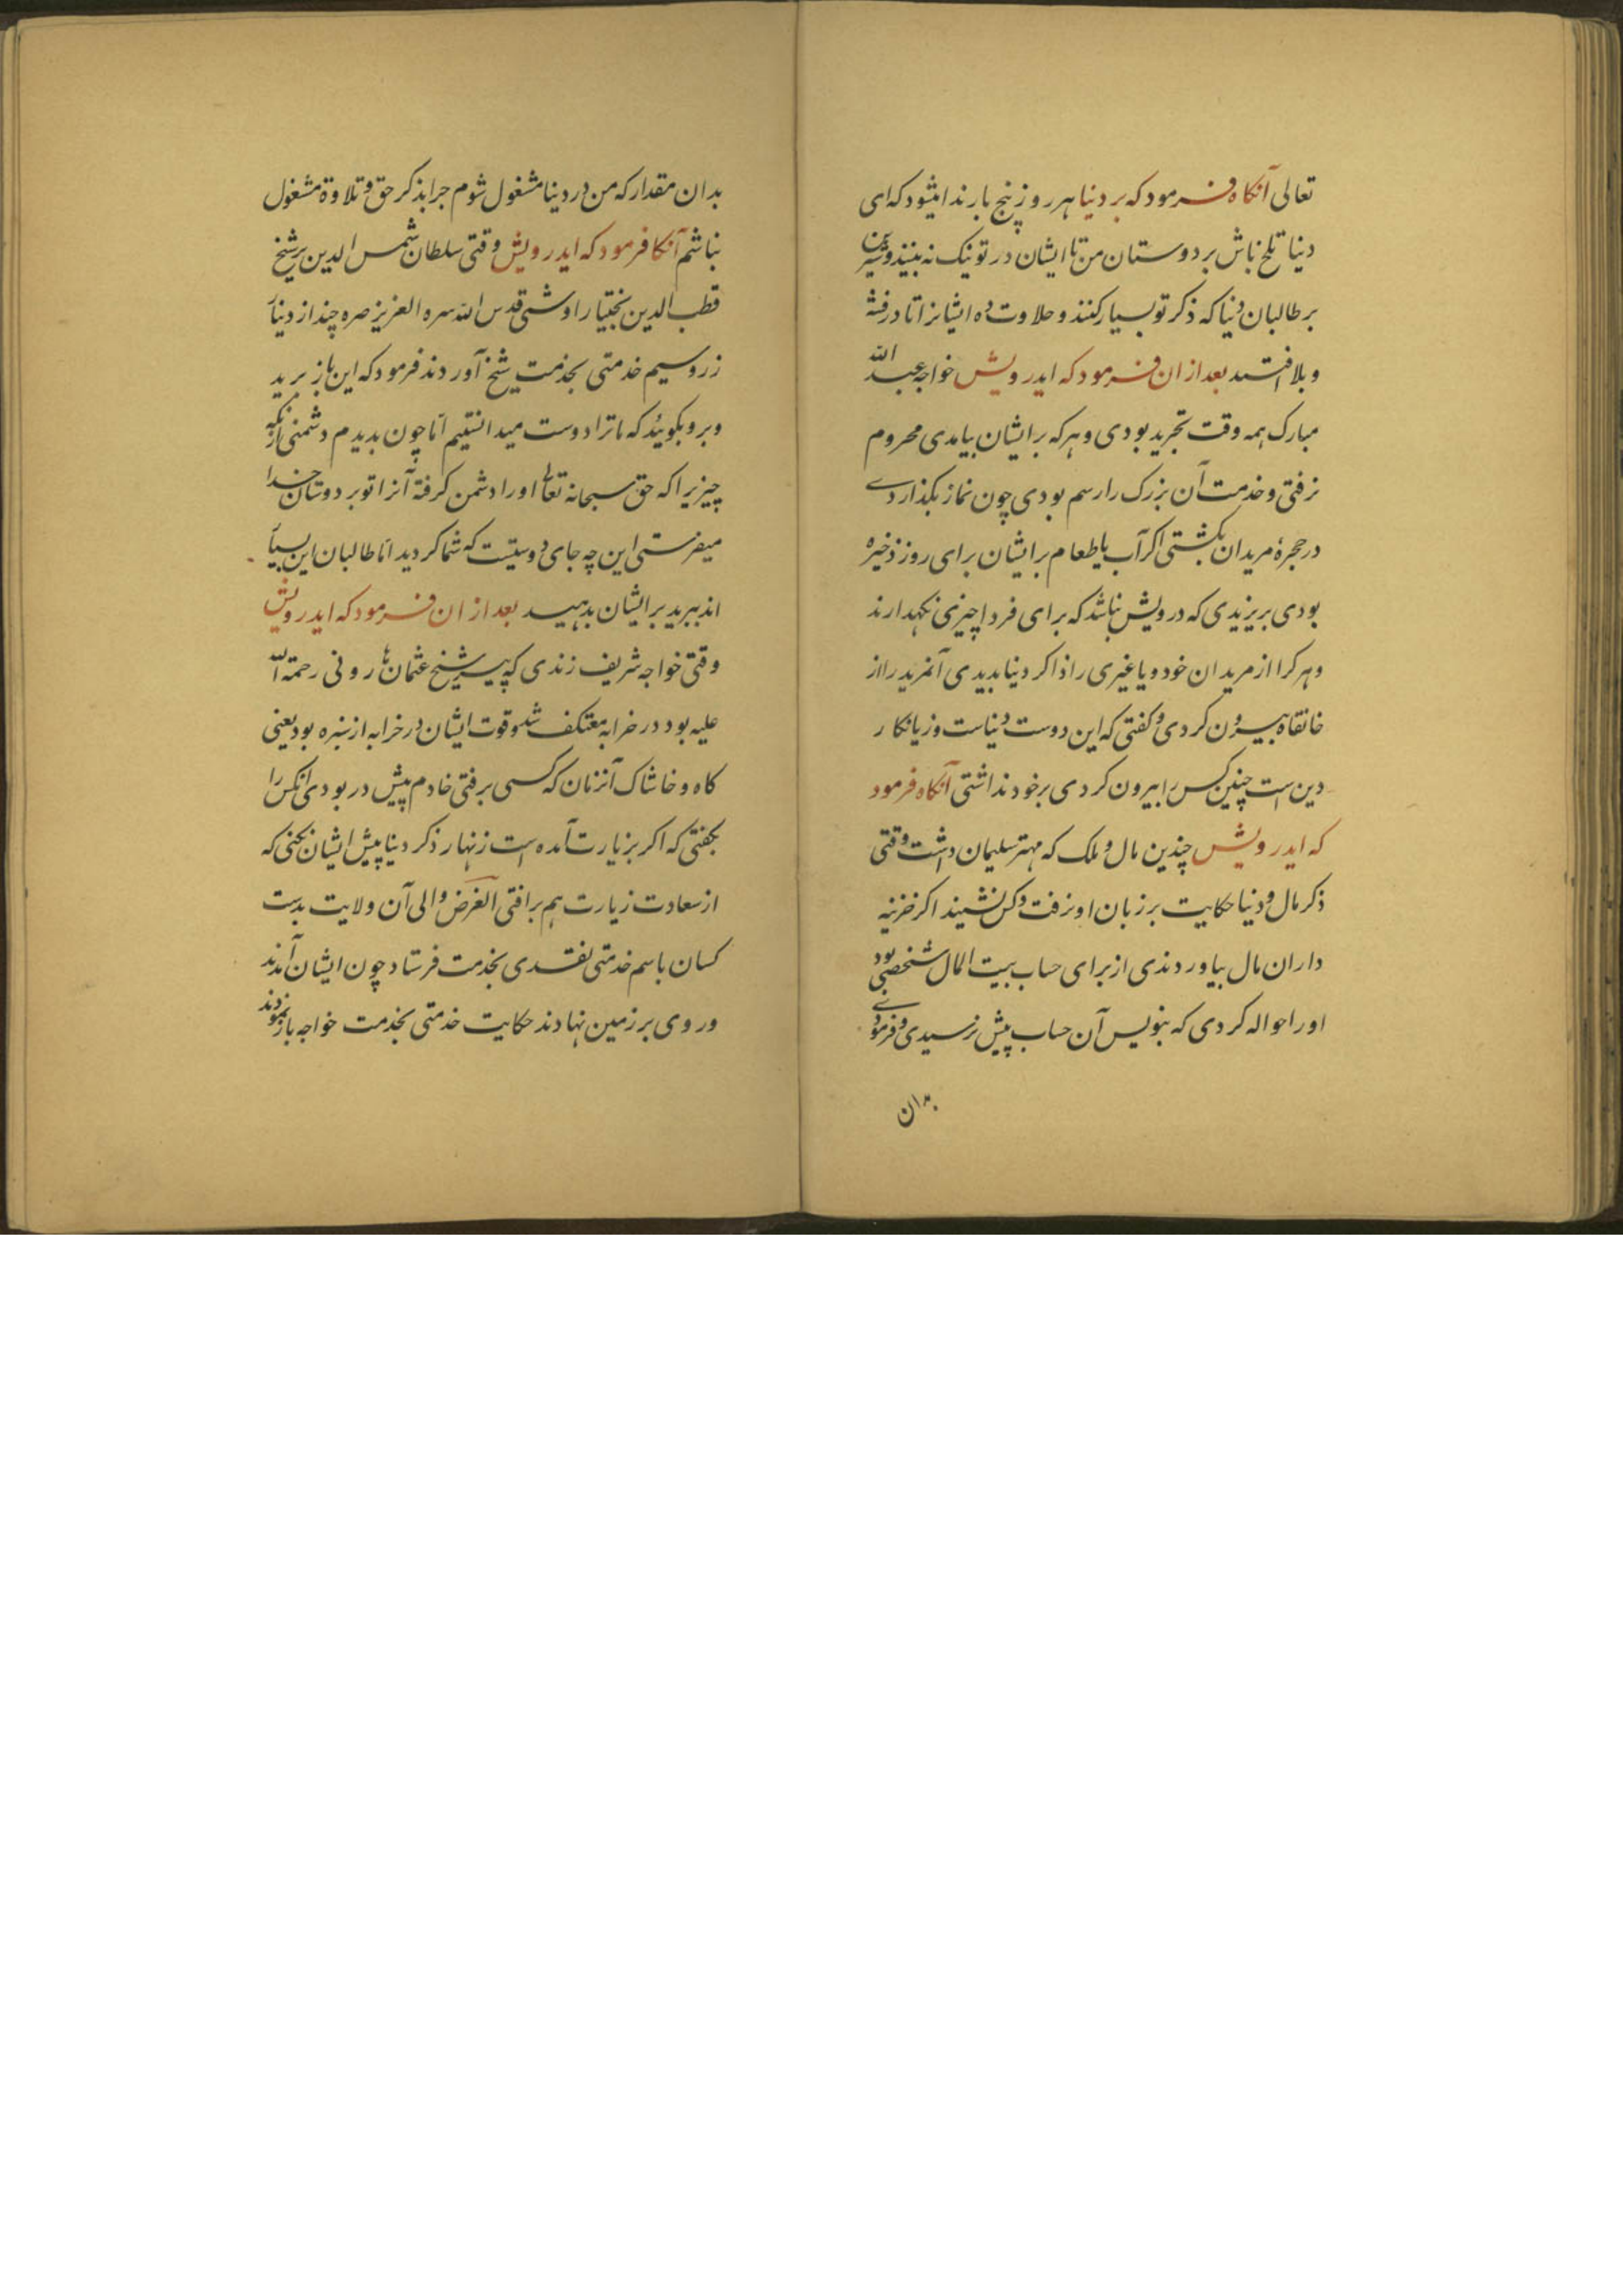 تعالی آنکاه فرمود که بر دنیا هر روز پنج بار ندا میشود که ای
دنیا تلخ باش بر دوستان من تا ایشان در تو نیک نه بینند و شیرین
بر طالبان دنیا که ذکر تو بسیار کنند و حلاوت ده ایشانرا تا در فتنه
و بلا افتند بعد از ان فرمود که ایدرویش خواجه عبد الله
مبارک همه وقت تجرید بودی و هر که بر ایشان بیامدی محروم
نرفتی و خدمت آن بزرک را رسم بودی چون نماز بکذاردی
در حجرهٔ مریدان بکشتی اکر آب یا طعام بر ایشان برای روز ذخیره
بودی بریزیدی که درویش نباشد که برای فردا چیزی نکهدارند
و هر کرا از مریدان خود و یا غیری را ذاکر دنیا بدیدی آنمرید را از
خانقاه بیرون کردی و کفتی که این دوست دنیاست و زیانکار
دین است چنین کس را بیرون کردی بر خود نداشتی آنکاه فرمود
که ایدرویش چندین مال و ملک که مهتر سلیمان داشت وقتی
ذکر مال و دنیا حکایت بر زبان او نرفت و کس نشنید اکر خزینه
داران مال بیاوردندی از برای حساب بیت المال شخصی بود
او را حواله کردی که بنویس آن حساب پیش نرسیدی و فرمودی
بدان
بدان مقدار که من در دنیا مشغول شوم چرا بذکر حق و تلاوة مشغول
نباشم آنکا فرمود که ایدرویش وقتی سلطان شمس الدین بر شیخ
قطب الدین بختیار اوشی قدس الله سره العزیز صره چند از دنیا
زر و سیم خدمتی بخدمت شیخ آوردند فرمود که این باز برید
و برو بکوئید که ما ترا دوست میدانستیم اما چون بدیدم دشمنی از آنکه
چیزیرا که حق سبحانه تعالی او را دشمن کرفته آنرا تو بر دوستان خدا
میفرستی این چه جای دوستیست که شما کردید اما طالبان این بسیار
اند ببرید بر ایشان بدهید بعد از ان فرمود که ایدرویش
وقتی خواجه شریف زندی که پیر شیخ عثمان هارونی رحمة الله
علیه بود در خرابه معتکف شد و قوت ایشان در خرابه از سبزه بود یعنی
کاه و خاشاک آنزمان که کسی برفتی خادم پیش در بودی آنکس را
بکفتی که اکر بزیارت آمده است زنهار ذکر دنیا پیش ایشان نکنی که
از سعادت زیارت هم برافتی الغرض والی آن ولایت بدست
کسان باسم خدمتی نقدی بخدمت فرستاد چون ایشان آمدند
و روی بر زمین نهادند حکایت خدمتی بخدمت خواجه باز نمودند